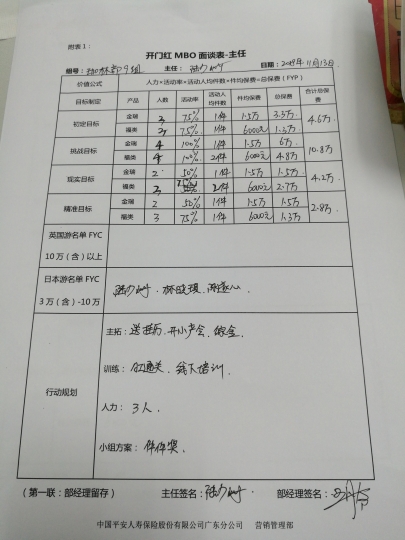 附表1：
开门红 MBO 面谈表-主任
组号： 9组 主任： 日期：2018年11月13日
价值公式 人力×活动率×活动人均件数×件均保费=总保费（FYP）
目标制定 产品 人数 活动率 活动人均件数 件均保费 总保费 合计总保费
初定目标 金瑞 3 75% 1件 1.5万 3.3万 4.6万
福类 3 75% 1件 6000元 1.3万
挑战目标 金瑞 4 100% 1件 1.5万 6万 10.8万
福类 4 100% 2件 6000元 4.8万
现实目标 金瑞 2 50% 1件 1.5万 1.5万 4.2万
福类 3 75% 2件 6000元 2.7万
精准目标 金瑞 2 50% 1件 1.5万 1.5万 2.8万
福类 3 75% 1件 6000元 1.3万
英国游名单 FYC
10 万（含）以上
日本游名单 FYC
3 万（含）-10 万
行动规划
主拓：送台历、开小产会、
训练： 通关、线下培训
人力：3人
小组方案：件件奖
（第一联：部经理留存） 主任签名： 部经理签名：
中国平安人寿保险股份有限公司广东分公司 营销管理部